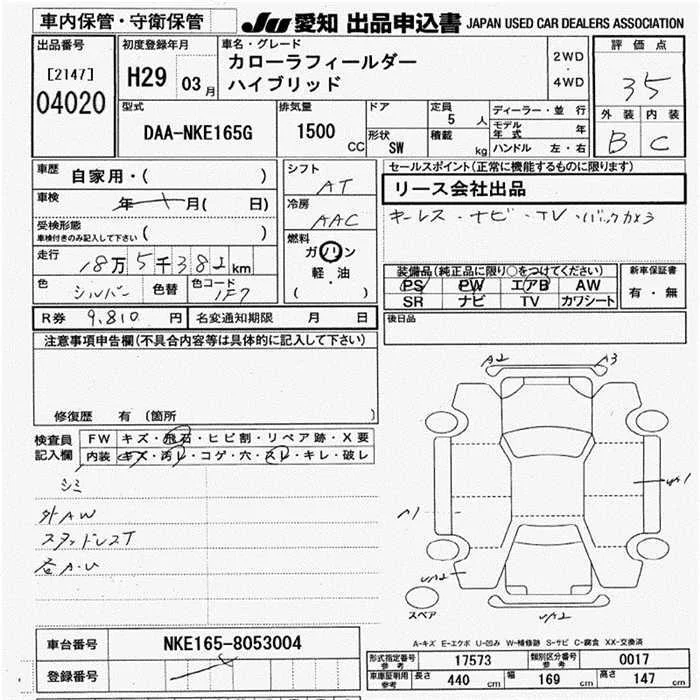 車内保管・守衛保管
JU 愛知 出品申込書 JAPAN USED CAR DEALERS ASSOCIATION
出品番号
[2147]
04020
初度登録年月
H29 03月
車名・グレード
カローラフィールダー
ハイブリッド
2WD
・
4WD
評価点
35
外装 内装
B C
型式
DAA-NKE165G
排気量
1500 CC
ドア
形状 SW
定員
5 人
積載 kg
ディーラー・並行
モデル年式 年
ハンドル 左・右
車歴
自家用・( )
車検
年 月( 日)
受検形態
車検付きのみ記入して下さい ( )
走行
18万5千382km
色
シルバー
色替
色コード
1F7
シフト
AT
冷房
AAC
燃料
ガソリン
軽・油
( )
セールスポイント(正常に機能するものに限ります)
リース会社出品
キーレス・ナビ・TV・バックカメラ
装備品(純正品に限り○をつけてください)
PS PW エアB AW
SR ナビ TV カワシート
新車保証書
有・無
R券 9,810 円
名変通知期限 月 日
後日品
注意事項申告欄(不具合内容等は具体的に記入して下さい)
修復歴 有 (箇所 )
検査員記入欄
FW キズ・飛石・ヒビ割・リペア跡・X要
内装 キズ・汚レ・コゲ・穴・スレ・キレ・破レ
シミ
外AW
スタッドレスT
各A・U
A2
A3
A1
UA1
UA2
UA2
スペア
A-キズ E-エクボ U-凹み W-補修跡 S-サビ C-腐食 XX-交換済
車台番号
NKE165-8053004
登録番号
形式指定番号 参考
17573
類別区分番号 参考
0017
車庫証明用 参考
長さ 440 cm
幅 169 cm
高さ 147 cm